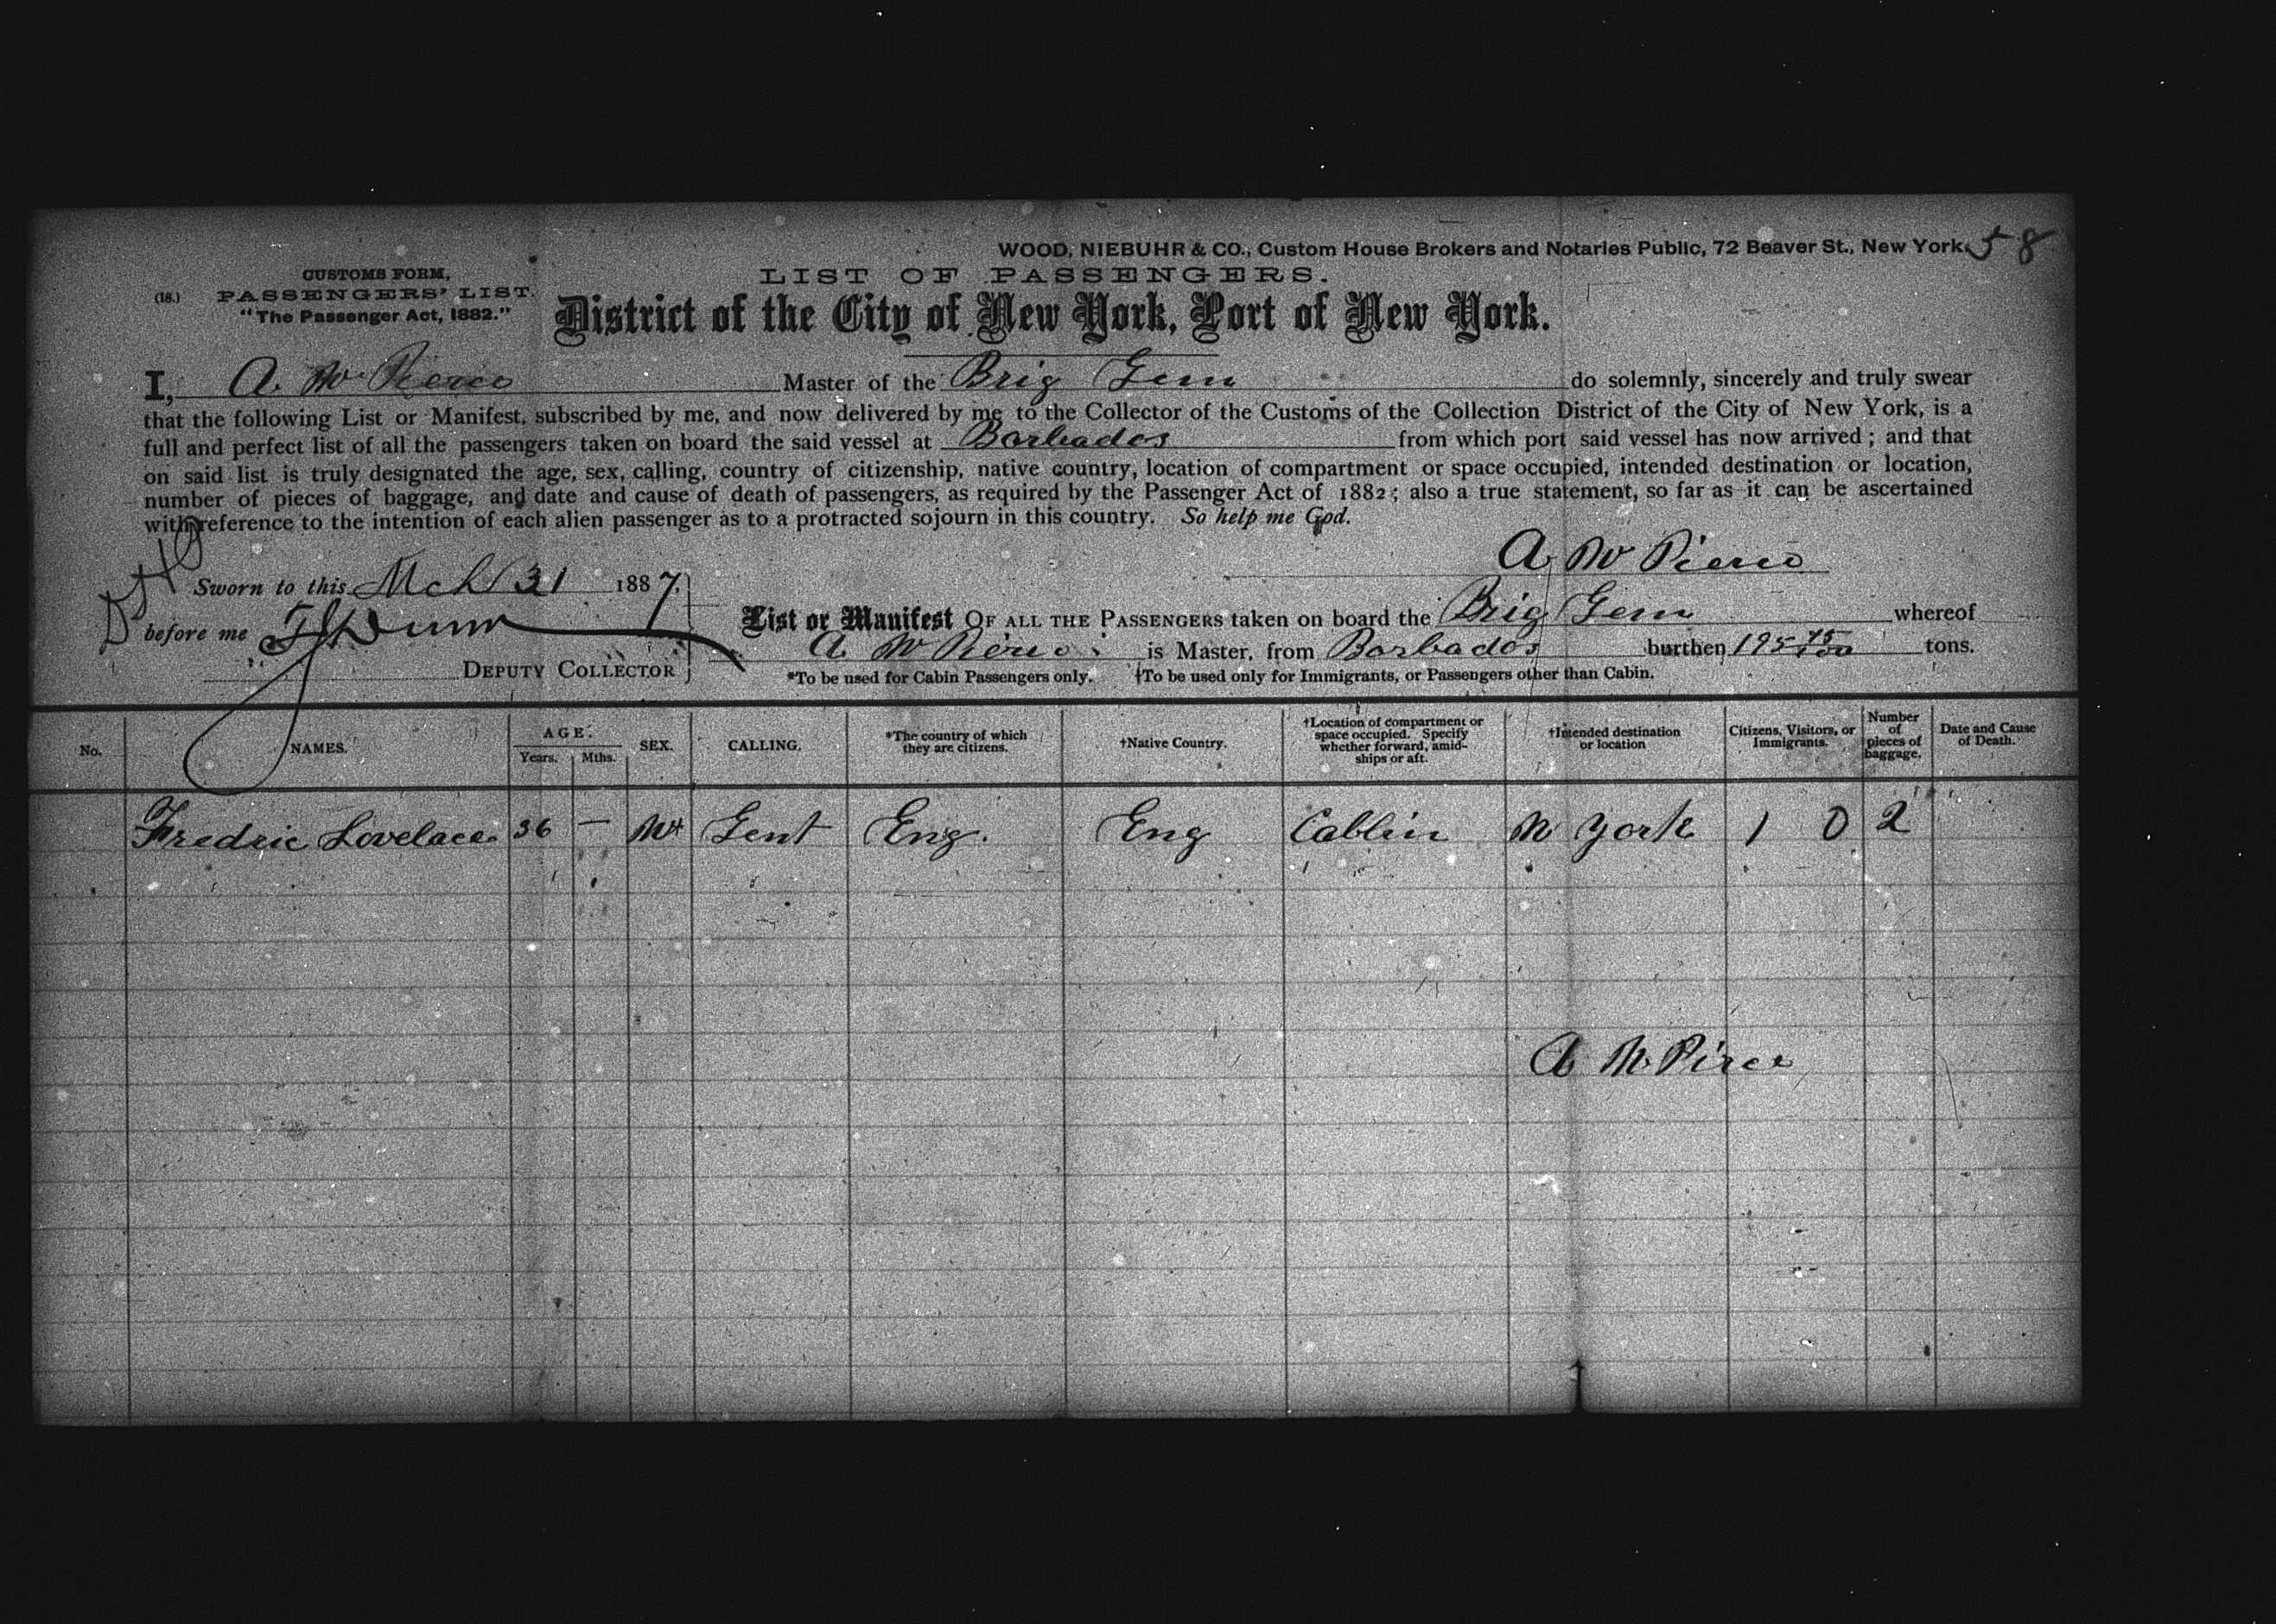 WOOD, NIEBUHR & CO., Custom House Brokers and Notaries Public, 72 Beaver St., New York. 58
CUSTOMS FORM,
(18.) PASSENGERS' LIST.
"The Passenger Act, 1882."
LIST OF PASSENGERS.
District of the City of New York, Port of New York.
I, A. W Pierce Master of the Brig Gem do solemnly, sincerely and truly swear
that the following List or Manifest, subscribed by me, and now delivered by me to the Collector of the Customs of the Collection District of the City of New York, is a
full and perfect list of all the passengers taken on board the said vessel at Barbados from which port said vessel has now arrived; and that
on said list is truly designated the age, sex, calling, country of citizenship, native country, location of compartment or space occupied, intended destination or location,
number of pieces of baggage, and date and cause of death of passengers, as required by the Passenger Act of 1882; also a true statement, so far as it can be ascertained
with reference to the intention of each alien passenger as to a protracted sojourn in this country. So help me God.
A W Pierce
Sworn to this Mch 31 1887.
before me
DEPUTY COLLECTOR
List or Manifest OF ALL THE PASSENGERS taken on board the Brig Gem whereof
A W Pierce is Master, from Barbados burthen 195 45/100 tons.
*To be used for Cabin Passengers only. †To be used only for Immigrants, or Passengers other than Cabin.
No. NAMES. AGE. Years. Mths. SEX. CALLING. *The country of which they are citizens. †Native Country. †Location of compartment or space occupied. Specify whether forward, amidships or aft. †Intended destination or location Citizens, Visitors, or Immigrants. Number of pieces of baggage. Date and Cause of Death.
Fredric Lovelace 36 — M Gent Eng. Eng Cabbin N York 1 0 2
A W Pirce